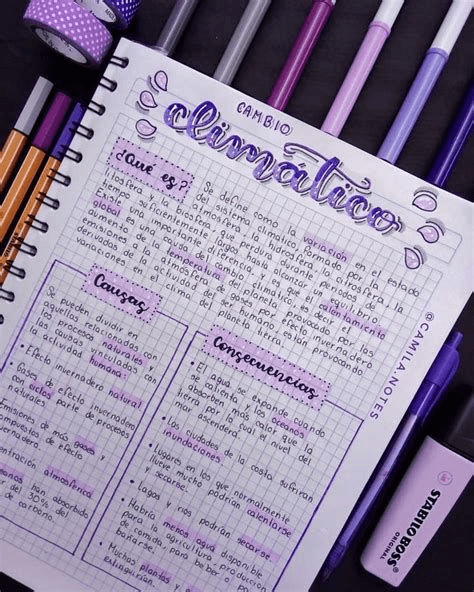 CAMBIO
climático
¿Qué es?
Se define como la variación en el estado
del sistema climático formado por la
atmósfera, la hidrosfera, la
litosfera y la biosfera que perdura durante periodos de
tiempo suficientemente largos hasta alcanzar un equilibrio.
Existe una importante diferencia, y es que el calentamiento
global es una causa del cambio climático, es
aumento de la temperatura del planeta provocado por las
emisiones a la atmósfera de gases por efecto invernadero
derivados de la actividad del ser humano, están provocando
variaciones en el clima del planeta tierra.
Causas
Se pueden dividir en
aquellas relacionadas con
los procesos naturales y
las causas vinculadas con
la actividad humana
• Efecto invernadero natural
Gases de efecto invernadero
son ciclos parte de procesos
naturales
Emisiones de más gases y
de efecto
invernadero
atmosférica
han absorbido
del 30% del
de carbono.
Consecuencias
• El agua se expande cuando
se calienta y los oceanos
absorben más calor que la
tierra por lo cual el nivel del
mar ascendera.
• Las ciudades de la costa sufriran
inundaciones
• Lugares en los que normalmente
llueve mucho podrian calentarse
y secarse.
• Lagos y rios podrian secarse.
• Habría menos agua disponible
para la agricultura, para beber o
para bañarse.
• Muchas plantas y
extinguirian.
@CAMILA.NOTES
STABILO BOSS
ORIGINAL